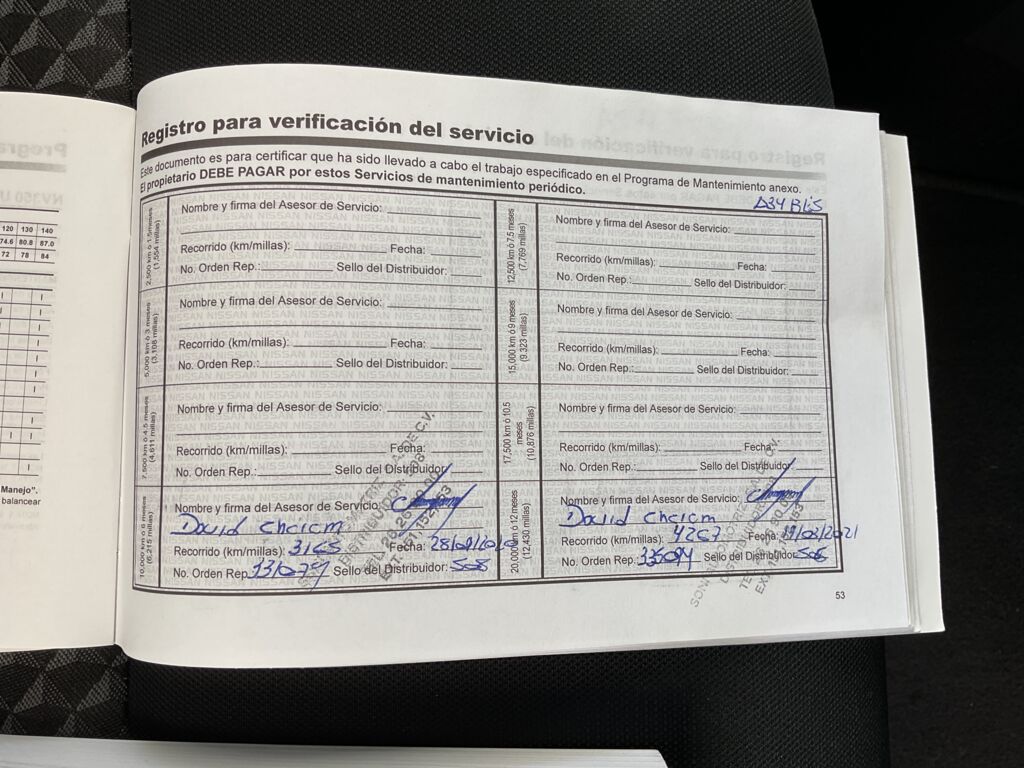 Registro para verificación del servicio
Este documento es para certificar que ha sido llevado a cabo el trabajo especificado en el Programa de Mantenimiento anexo.
El propietario DEBE PAGAR por estos Servicios de mantenimiento periódico.
2,500 km ó 1.5 meses
(1,554 millas)
Nombre y firma del Asesor de Servicio:
Recorrido (km/millas): Fecha:
No. Orden Rep.: Sello del Distribuidor:
5,000 km ó 3 meses
(3,108 millas)
Nombre y firma del Asesor de Servicio:
Recorrido (km/millas): Fecha:
No. Orden Rep.: Sello del Distribuidor:
7,500 km ó 4.5 meses
(4,611 millas)
Nombre y firma del Asesor de Servicio:
Recorrido (km/millas): Fecha:
No. Orden Rep.: Sello del Distribuidor:
10,000 km ó 6 meses
(6,215 millas)
Nombre y firma del Asesor de Servicio:
David
Recorrido (km/millas): Fecha:
No. Orden Rep. 331079 Sello del Distribuidor: 508
12,500 km ó 7.5 meses
(7,769 millas)
Nombre y firma del Asesor de Servicio:
Recorrido (km/millas): Fecha:
No. Orden Rep.: Sello del Distribuidor:
15,000 km ó 9 meses
(9,323 millas)
Nombre y firma del Asesor de Servicio:
Recorrido (km/millas): Fecha:
No. Orden Rep.: Sello del Distribuidor:
17,500 km ó 10.5
meses
(10,876 millas)
Nombre y firma del Asesor de Servicio:
Recorrido (km/millas): Fecha:
No. Orden Rep.: Sello del Distribuidor:
20,000 km ó 12 meses
(12,430 millas)
Nombre y firma del Asesor de Servicio:
David
Recorrido (km/millas): 4267 Fecha:
No. Orden Rep. Sello del Distribuidor: 508
53
120 130 140
74.6 80.8 87.0
72 78 84
Manejo".
balancear